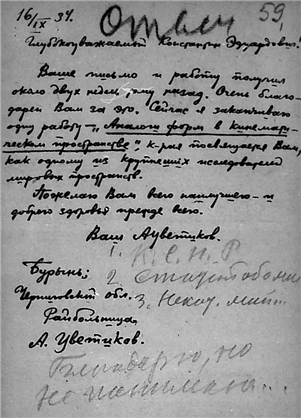 16/IX 34. Ответ 59
Глубокоуважаемый Константин Эдуардович!
Ваше письмо и работу получил
около двух недель тому назад. Очень благо-
дарен Вам за это. Сейчас я заканчиваю
одну работу — „Аналоги форм в кинемати-
ческом пространстве", к-рая посвящается Вам,
как одному из крупнейших исследователей
мировых пространств.
Пожелаю Вам всего наилучшего и
доброго здоровья прежде всего.
Ваш А Цветиков.
1.
Бурынь:
2
Черниговской обл.
3.
Райбольница
А. Цветиков.
Благодарю, но
не понимаю...